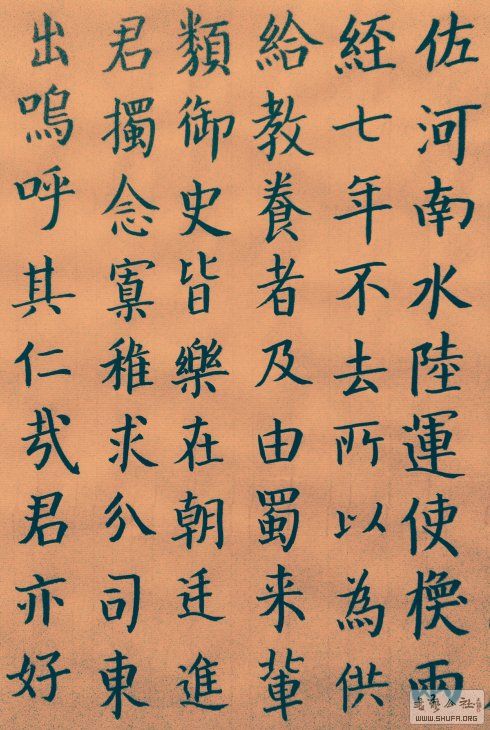 佐河南水陸運使換兩
經七年不去所以為供
給教養者及由蜀来輩
類御史皆樂在朝廷進
君獨念寡稚求分司東
出嗚呼其仁哉君亦好
書藝公社
WWW.SHUFA.ORG